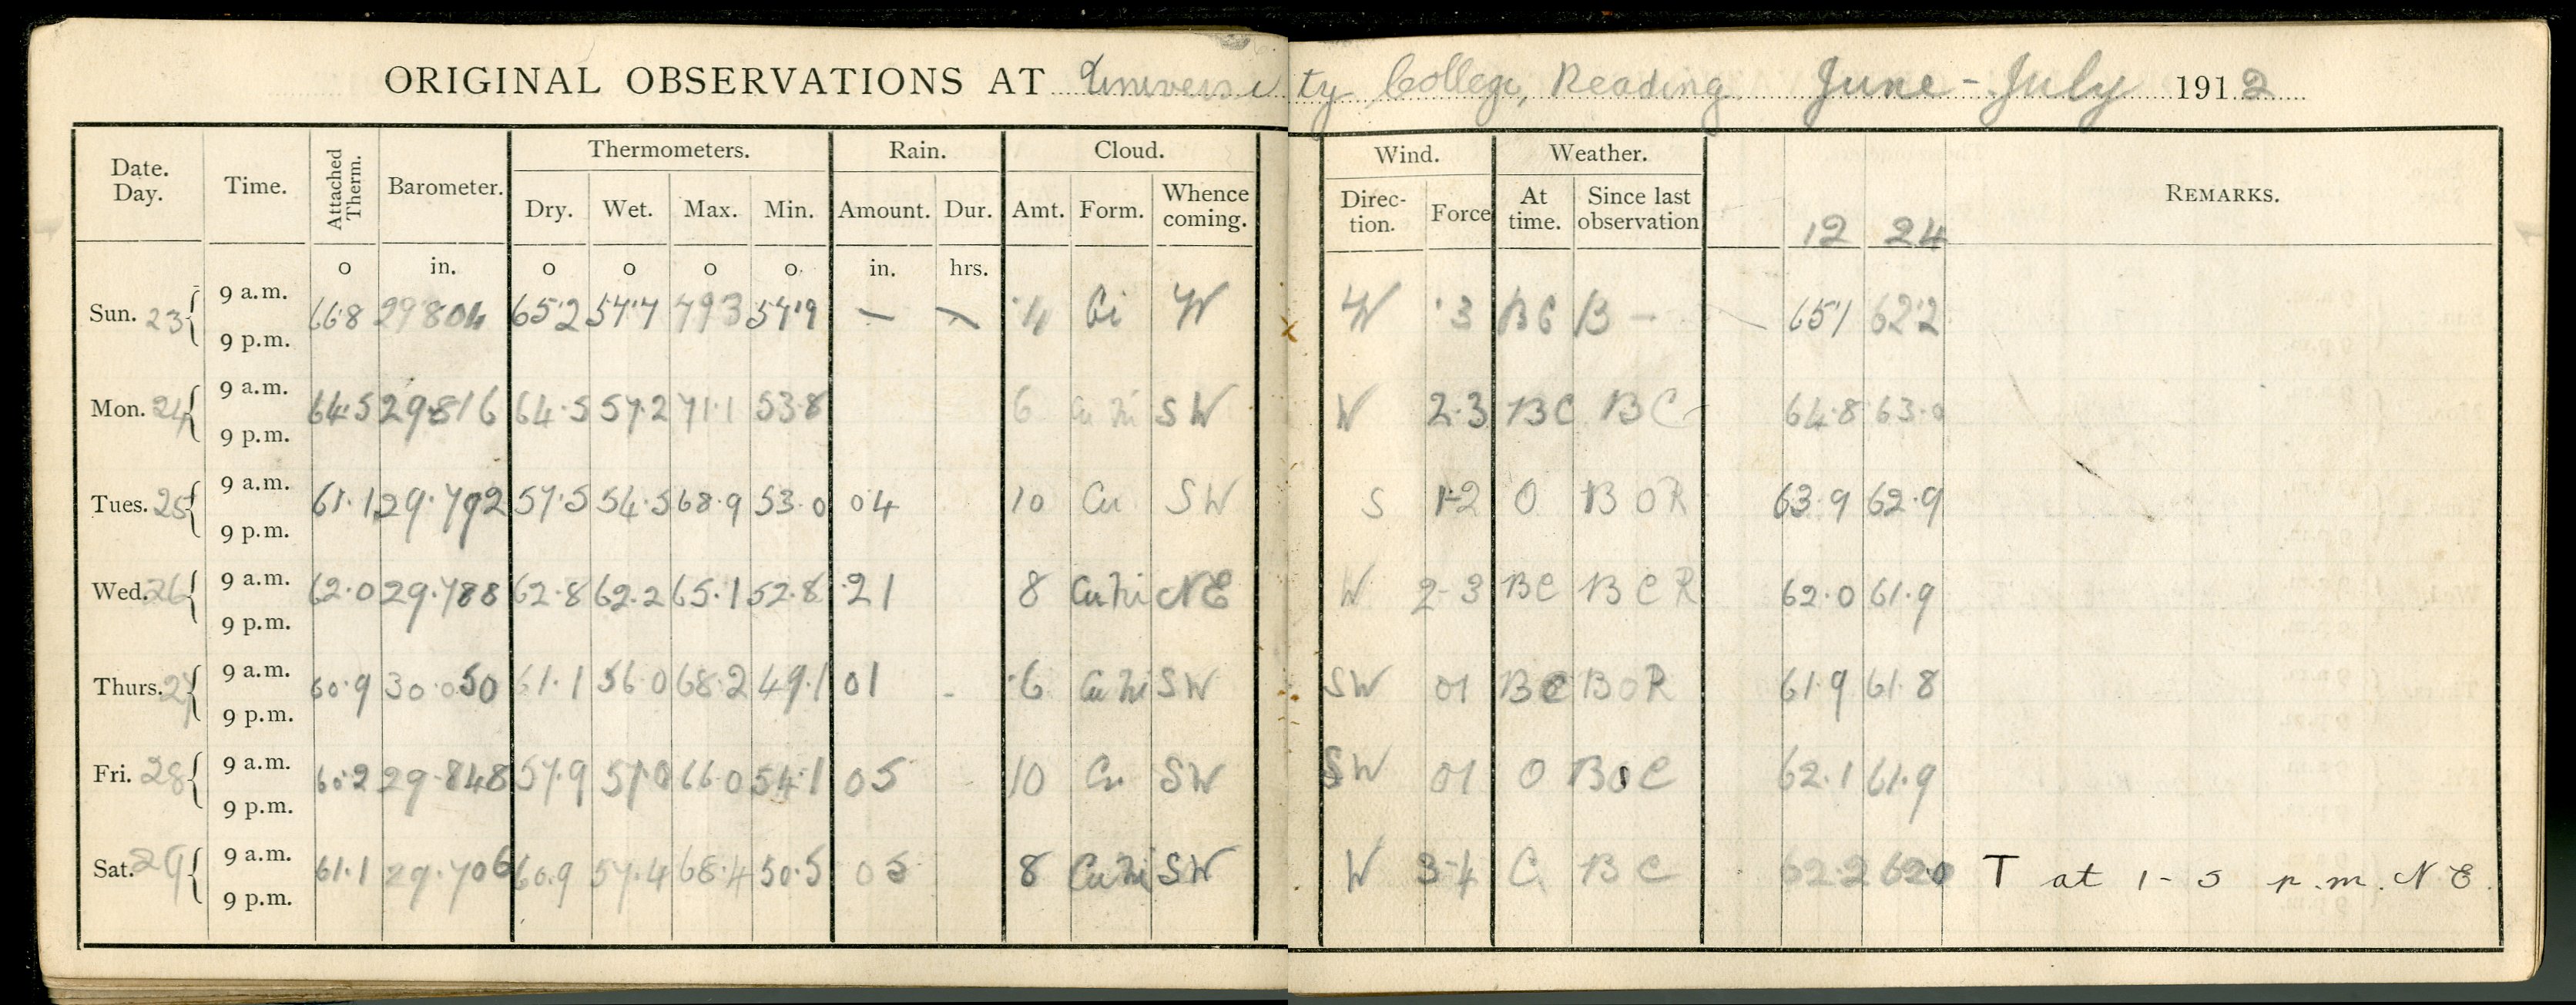 ORIGINAL OBSERVATIONS AT University College, Reading June - July 1912
Date. Day. Time. Attached Therm. Barometer. Thermometers. Rain. Cloud. Wind. Weather. REMARKS.
Dry. Wet. Max. Min. Amount. Dur. Amt. Form. Whence coming. Direc-tion. Force At time. Since last observation 12 24
o in. o o o o in. hrs.
Sun. 23 9 a.m. 66.8 29.804 65.2 57.7 79.3 54.9 — — .4 Ci W W .3 BC B — 65.1 62.2
9 p.m.
Mon. 24 9 a.m. 64.5 29.816 64.5 57.2 71.1 53.8 6 Cu Ni SW W 2.3 BC BC 64.8 63.0
9 p.m.
Tues. 25 9 a.m. 61.1 29.792 57.5 54.5 68.9 53.0 04 10 Cu SW S 1-2 O B O R 63.9 62.9
9 p.m.
Wed. 26 9 a.m. 62.0 29.788 62.8 62.2 65.1 52.8 .21 8 Cu Ni NE W 2-3 BC B C R 62.0 61.9
9 p.m.
Thurs. 27 9 a.m. 60.9 30.050 61.1 56.0 68.2 49.1 01 .6 Cu Ni SW SW 01 BC B O R 61.9 61.8
9 p.m.
Fri. 28 9 a.m. 60.2 29.848 57.9 57.0 66.0 54.1 05 10 Cu SW SW 01 O B O C 62.1 61.9
9 p.m.
Sat. 29 9 a.m. 61.1 29.706 60.9 57.4 68.4 50.5 05 8 Cu Ni SW W 3-4 C BC 62.2 62.0 T at 1-5 p.m. NE.
9 p.m.